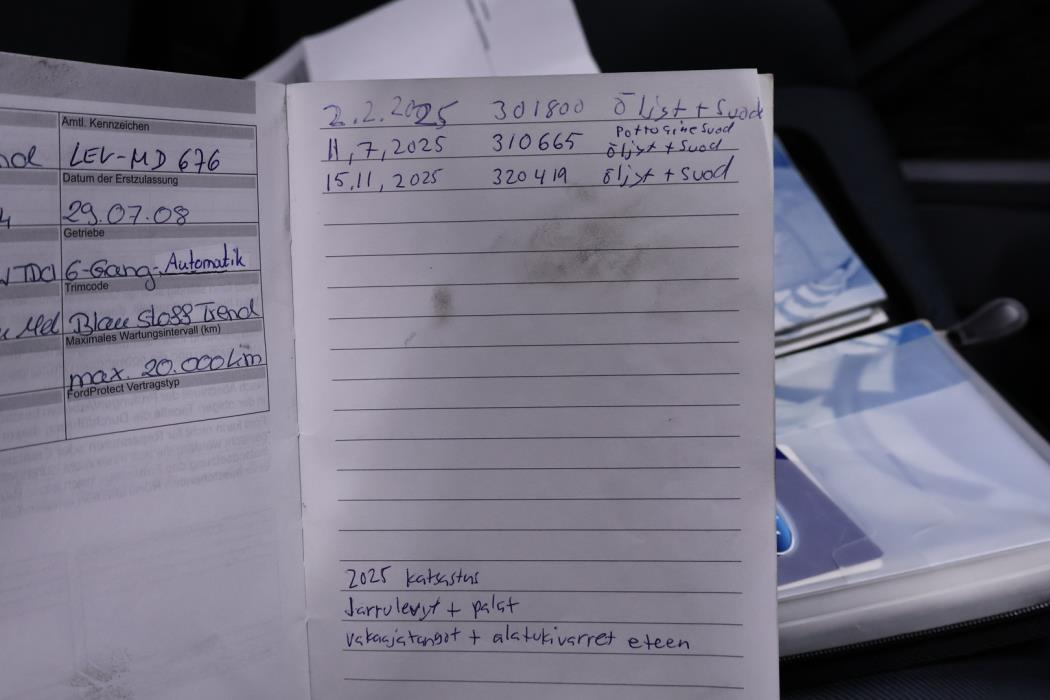 Amtl. Kennzeichen
LEV-MD 676
Datum der Erstzulassung
29.07.08
Getriebe
TDCI 6-Gang-Automatik
Trimcode
Trend
Maximales Wartungsintervall (km)
max. 20.000km
FordProtect Vertragstyp
2.2.2025 301800 Öljyt + Suod
Polttoaine Suod
11,7,2025 310665 Öljyt + Suod
15,11,2025 320419 öljyt + Suod
2025 katsastus
Jarrulevyt + palat
vakaajatangot + alatukivarret eteen